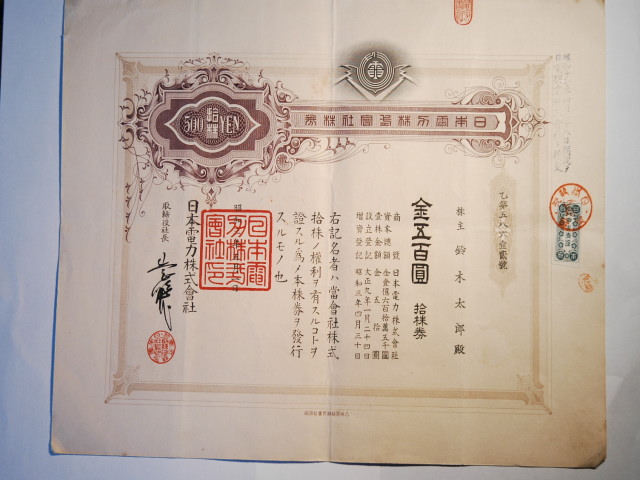 日本電力株式會社株券
拾株
500 YEN
乙第五八六壹貳號
株主 鈴木太郎殿
金五百圓 拾株券
商號 日本電力株式會社
資本總額 金壹億六百拾萬五千圓
壹株金額 金五拾圓
設立登記 大正九年一月二十四日
增資登記 昭和三年四月三十日
右記名者ハ當會社株式
拾株ノ權利ヲ有スルコトヲ
證スル爲メ本株券ヲ發行
スルモノ也
日本電力株式會社
取締役社長
日本電力株式會社之印